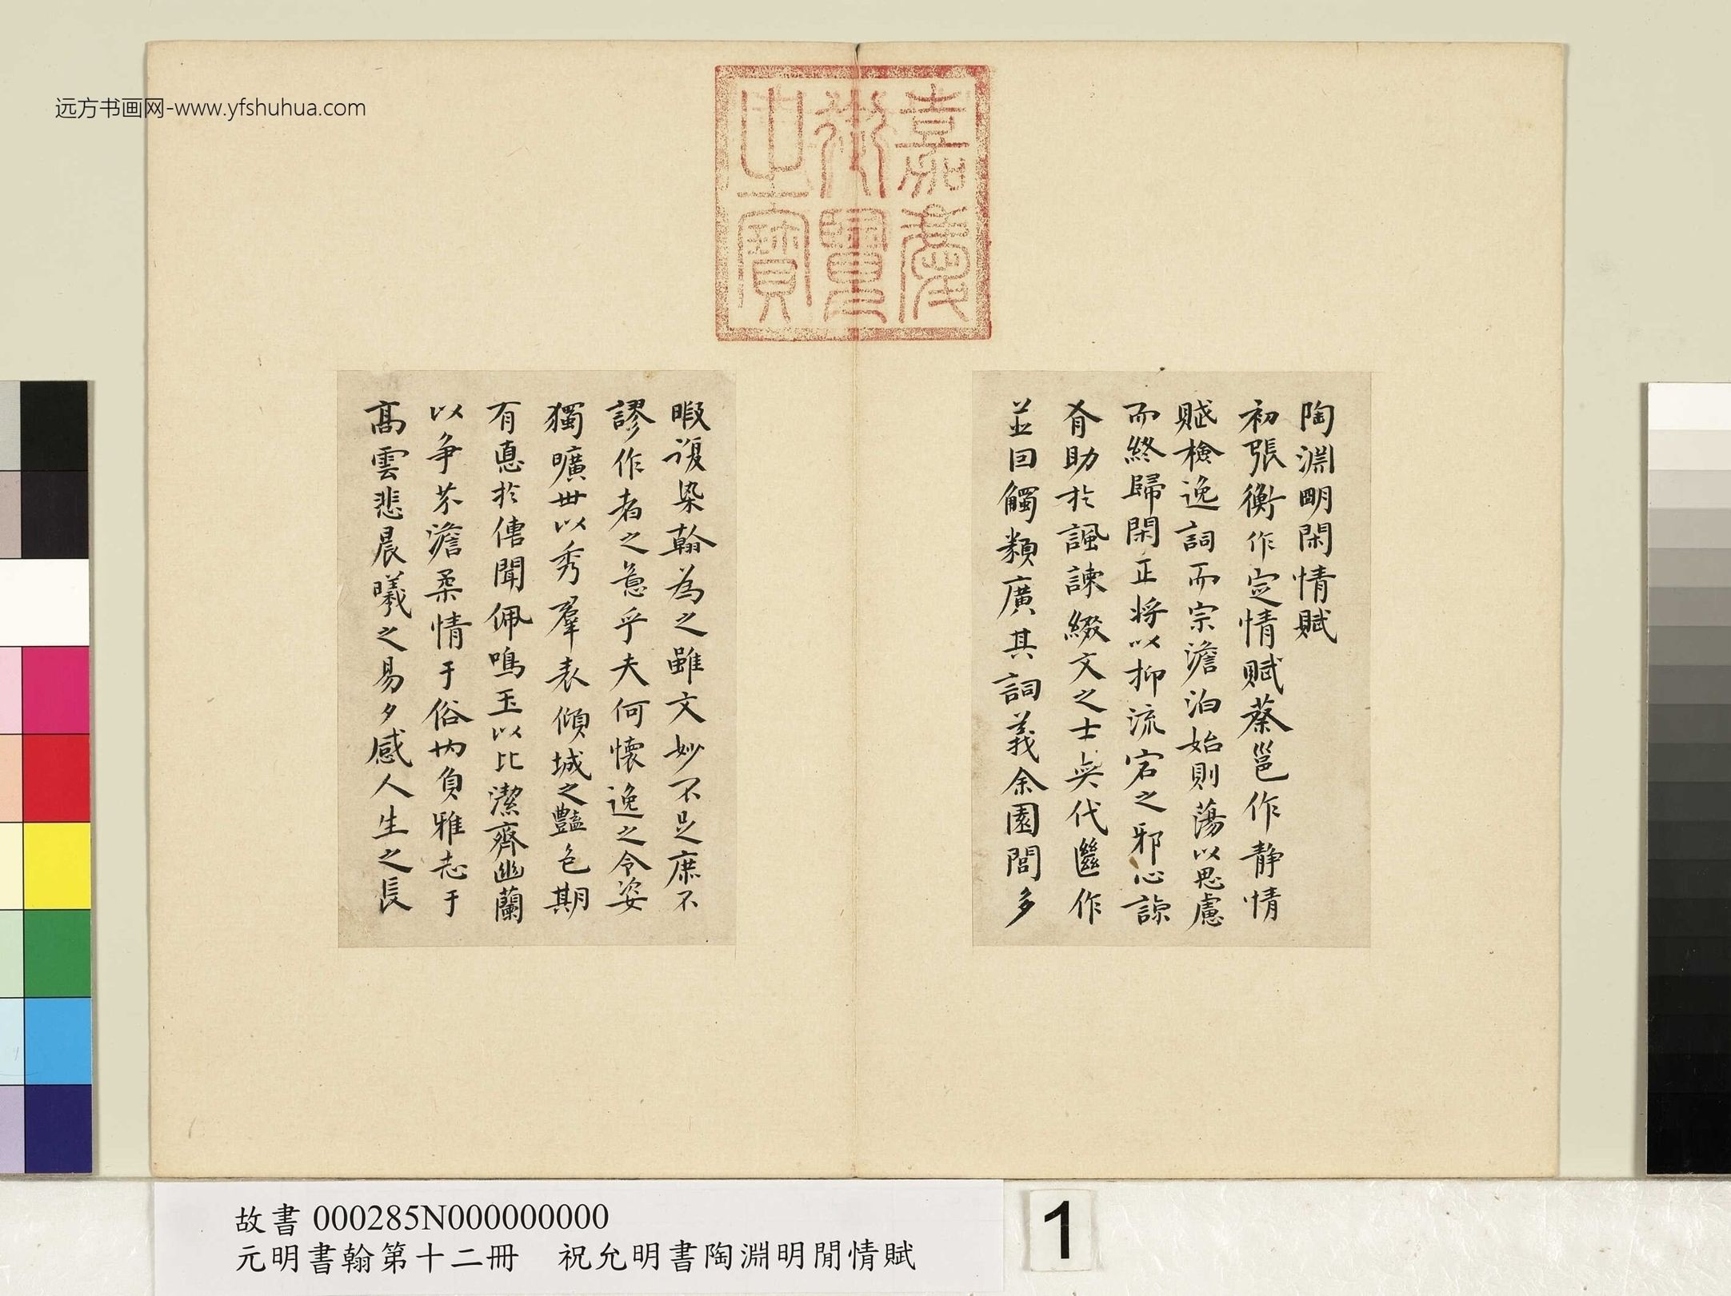 远方书画网-www.yfshuhua.com
嘉慶
御覽
之寶
陶淵明閑情賦
初張衡作定情賦蔡邕作静情
賦檢逸詞而宗澹泊始則蕩以思慮
而終歸閑正将以抑流宕之邪心諒
有助於諷諫綴文之士奕代繼作
並因觸類廣其詞義余園閭多
暇復染翰為之雖文妙不足庶不
謬作者之意乎夫何懷逸之令姿
獨曠世以秀羣表傾城之豔色期
有悳於傳聞佩鳴玉以比潔齊幽蘭
以争芬澹柔情于俗内負雅志于
高雲悲晨曦之易夕感人生之長
故書 000285N000000000
元明書翰第十二冊 祝允明書陶淵明閒情賦
1